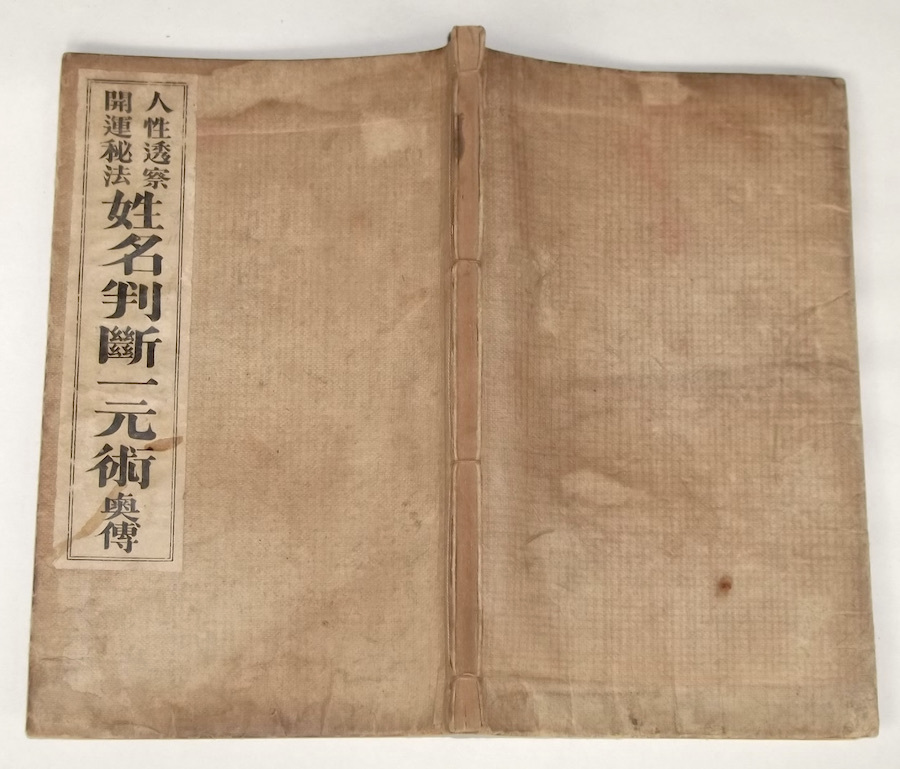 人性透察
開運秘法
姓名判斷一元術奥傳